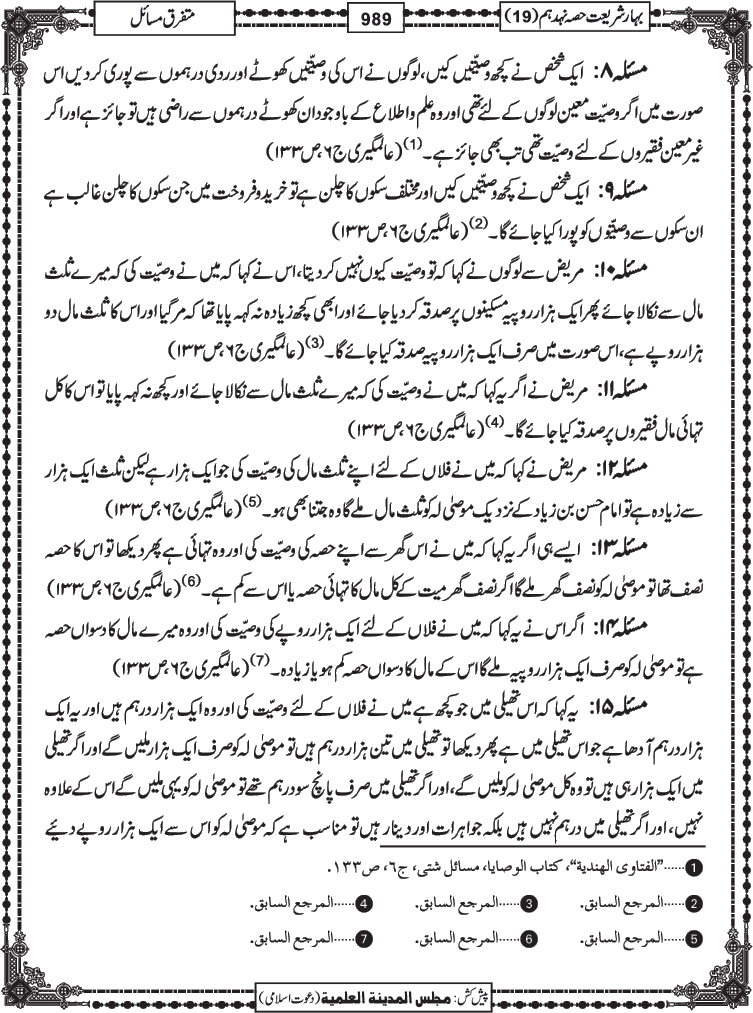 بہارِ شریعت حصہ نہدہم (19)
989
متفرق مسائل
مسئلہ ۸: ایک شخص نے کچھ وصیّتیں کیں، لوگوں نے اس کی وصیّتیں کھوٹے اور ردی درہموں سے پوری کردیں اس
صورت میں اگر وصیّت معین لوگوں کے لئے تھی اور وہ علم و اطلاع کے باوجود ان کھوٹے درہموں سے راضی ہیں تو جائز ہے اور اگر
غیر معین فقیروں کے لئے وصیّت تھی تب بھی جائز ہے۔(1) (عالمگیری ج۶، ص۱۳۳)
مسئلہ ۹: ایک شخص نے کچھ وصیّتیں کیں اور مختلف سکوں کا چلن ہے تو خرید و فروخت میں جن سکوں کا چلن غالب ہے
ان سکوں سے وصیّتوں کو پورا کیا جائے گا۔(2) (عالمگیری ج۶، ص۱۳۳)
مسئلہ ۱۰: مریض سے لوگوں نے کہا کہ تو وصیّت کیوں نہیں کر دیتا، اس نے کہا کہ میں نے وصیّت کی کہ میرے ثلث
مال سے نکالا جائے پھر ایک ہزار روپیہ مسکینوں پر صدقہ کر دیا جائے اور ابھی کچھ زیادہ نہ کہہ پایا تھا کہ مر گیا اور اس کا ثلث مال دو
ہزار روپے ہے، اس صورت میں صرف ایک ہزار روپیہ صدقہ کیا جائے گا۔(3) (عالمگیری ج۶، ص۱۳۳)
مسئلہ ۱۱: مریض نے اگر یہ کہا کہ میں نے وصیّت کی کہ میرے ثلث مال سے نکالا جائے اور کچھ نہ کہہ پایا تو اس کا کل
تہائی مال فقیروں پر صدقہ کیا جائے گا۔(4) (عالمگیری ج۶، ص۱۳۳)
مسئلہ ۱۲: مریض نے کہا کہ میں نے فلاں کے لئے اپنے ثلث مال کی وصیّت کی جو ایک ہزار ہے لیکن ثلث ایک ہزار
سے زیادہ ہے تو امام حسن بن زیاد کے نزدیک موصٰی لہ کو ثلث مال ملے گا وہ جتنا بھی ہو۔(5) (عالمگیری ج۶، ص۱۳۳)
مسئلہ ۱۳: ایسے ہی اگر یہ کہا کہ میں نے اس گھر سے اپنے حصہ کی وصیّت کی اور وہ تہائی ہے پھر دیکھا تو اس کا حصہ
نصف تھا تو موصٰی لہ کو نصف گھر ملے گا اگر نصف گھر میت کے کل مال کا تہائی حصہ یا اس سے کم ہے۔(6) (عالمگیری ج۶، ص۱۳۳)
مسئلہ ۱۴: اگر اس نے یہ کہا کہ میں نے فلاں کے لئے ایک ہزار روپے کی وصیّت کی اور وہ میرے مال کا دسواں حصہ
ہے تو موصٰی لہ کو صرف ایک ہزار روپیہ ملے گا اس کے مال کا دسواں حصہ کم ہو یا زیادہ۔(7) (عالمگیری ج۶، ص۱۳۳)
مسئلہ ۱۵: یہ کہا کہ اس تھیلی میں جو کچھ ہے میں نے فلاں کے لئے وصیّت کی اور وہ ایک ہزار درہم ہیں اور یہ ایک
ہزار درہم آدھا ہے جو اس تھیلی میں ہے پھر دیکھا تو تھیلی میں تین ہزار درہم ہیں تو موصٰی لہ کو صرف ایک ہزار ملیں گے اور اگر تھیلی
میں ایک ہزار ہی ہیں تو وہ کل موصٰی لہ کو ملیں گے، اور اگر تھیلی میں صرف پانچ سو درہم تھے تو موصٰی لہ کو یہی ملیں گے اس کے علاوہ
نہیں، اور اگر تھیلی میں درہم نہیں ہیں بلکہ جواہرات اور دینار ہیں تو مناسب ہے کہ موصٰی لہ کو اس سے ایک ہزار روپے دیئے
1......"الفتاوى الهندية"، كتاب الوصايا، مسائل شتى، ج٦، ص١٣٣.
2......المرجع السابق. 3......المرجع السابق. 4......المرجع السابق.
5......المرجع السابق. 6......المرجع السابق. 7......المرجع السابق.
پیش کش: مجلس المدینۃ العلمیۃ (دعوت اسلامی)